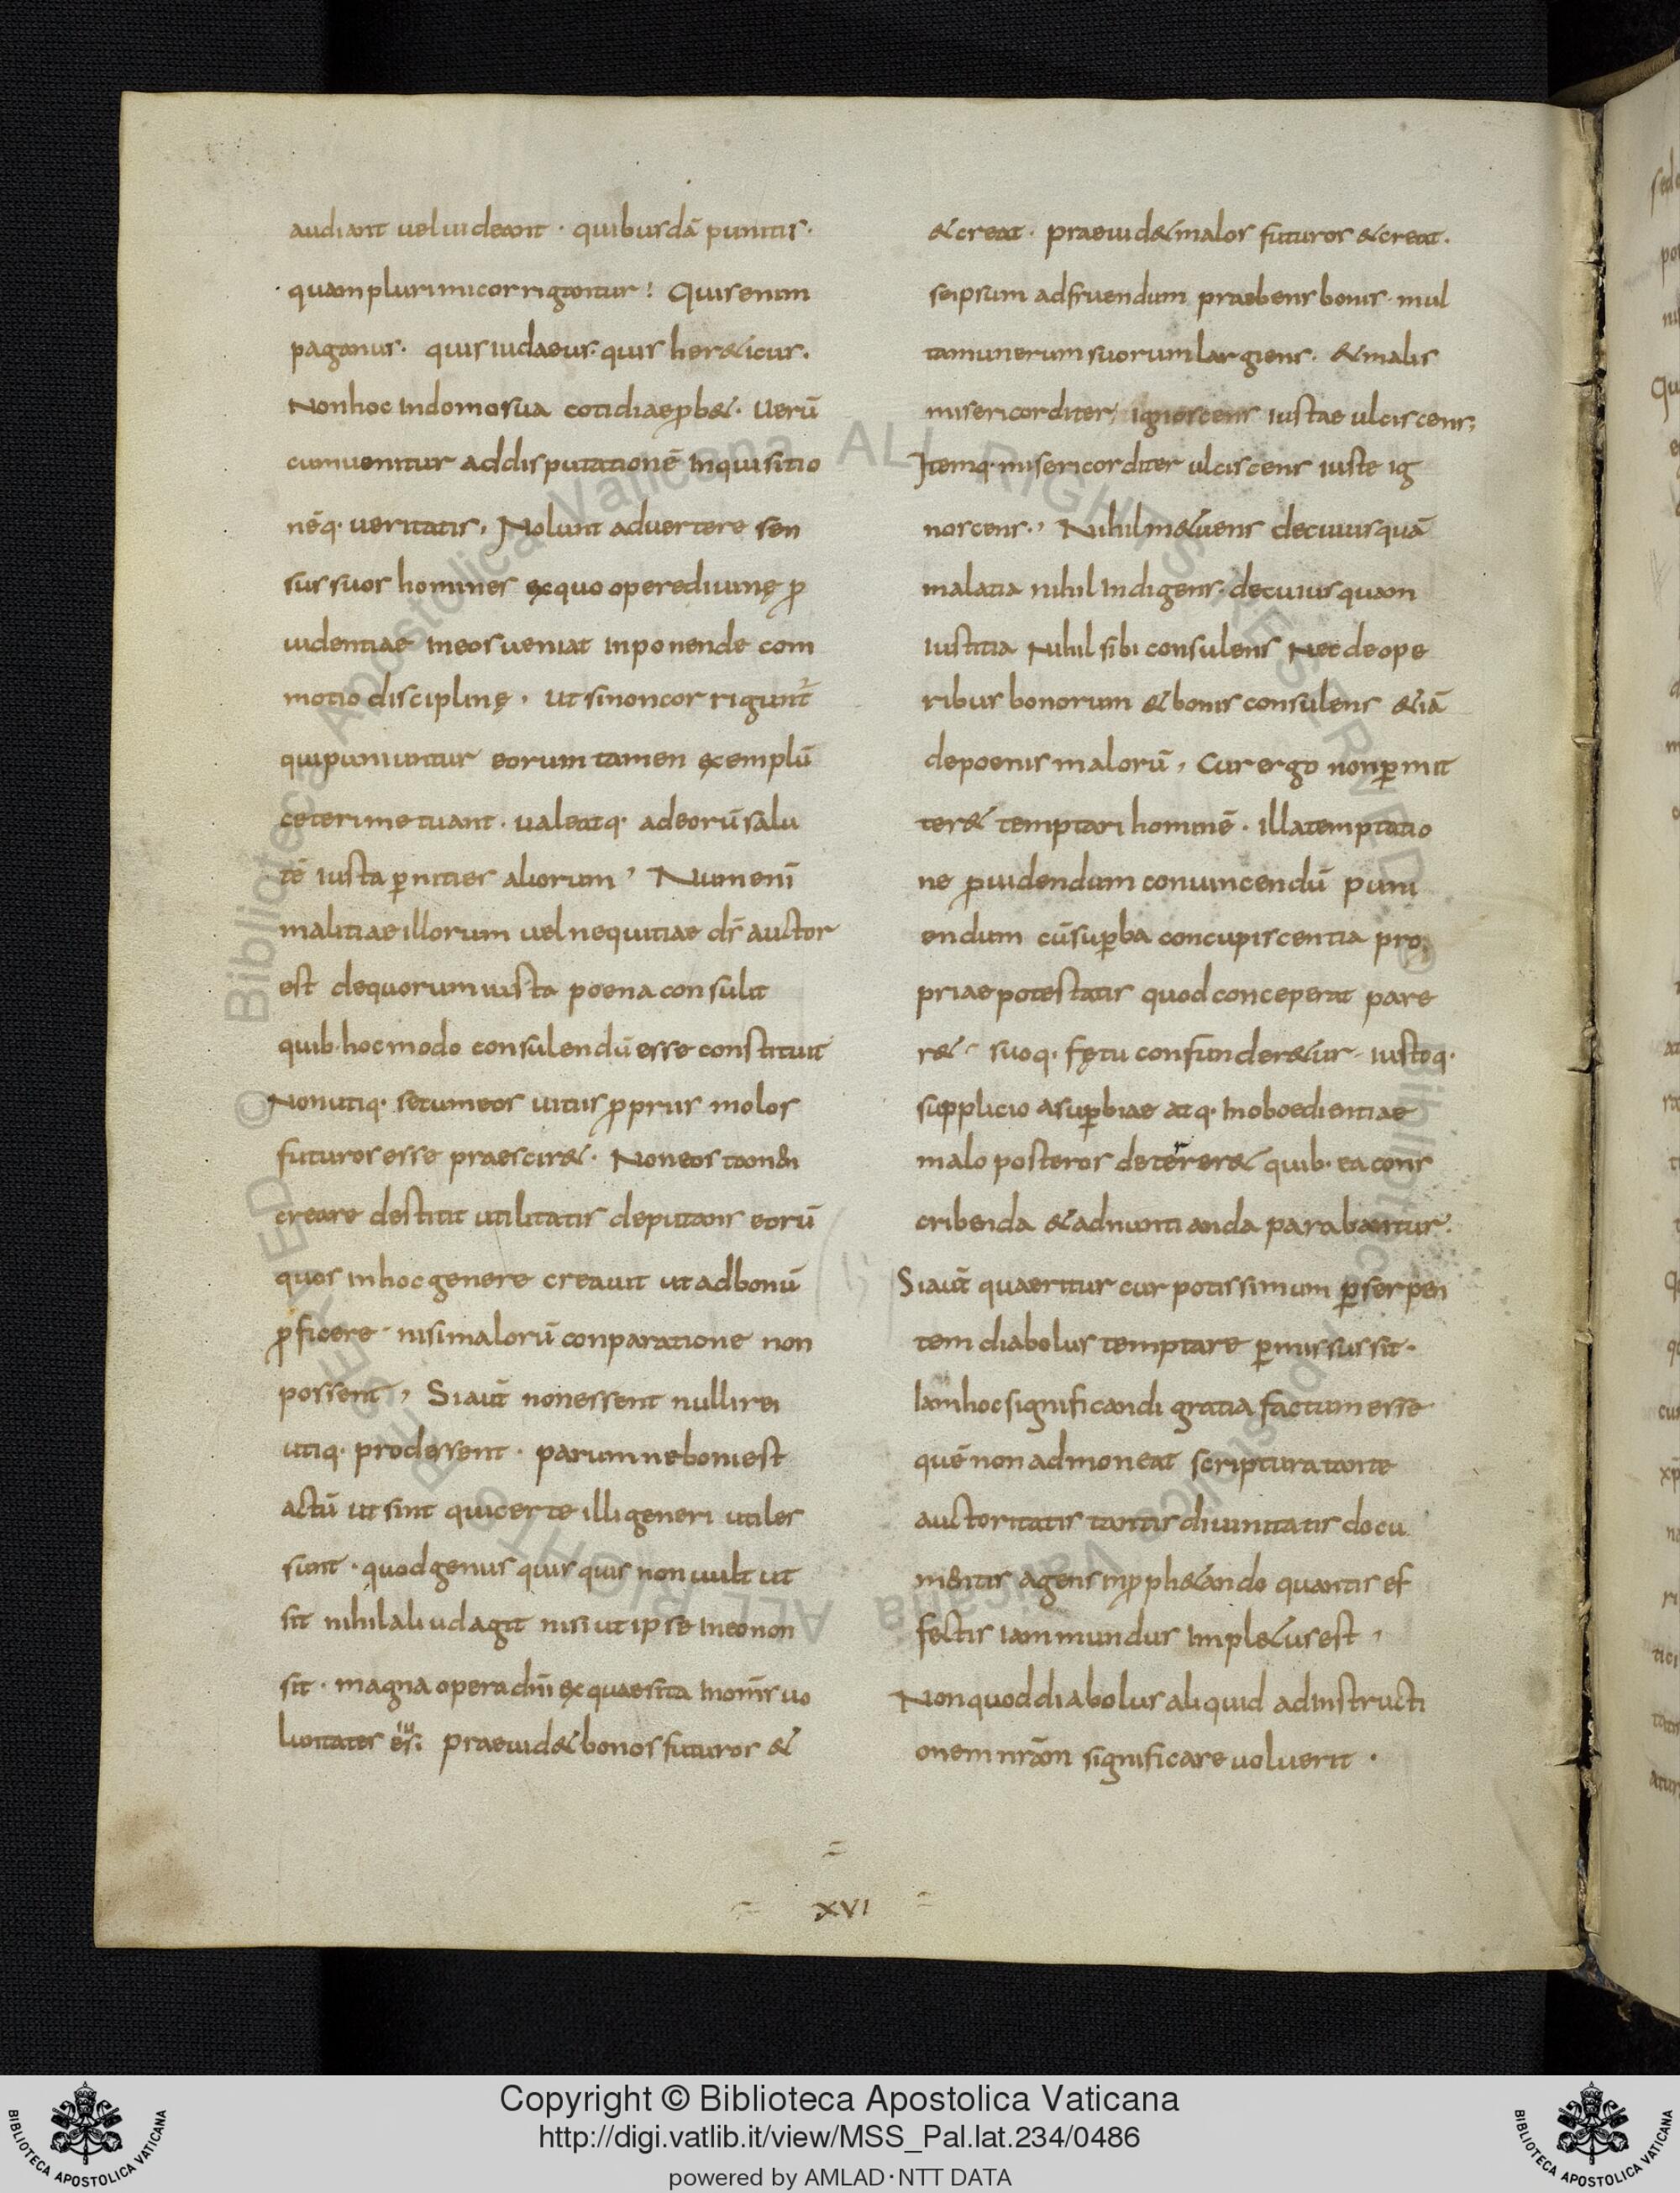 audiant uel uideant · quibusdā punitis ·
quam plurimi corrigantur ! Quis enim
paganus · quis iudaeus · quis her&icus ·
Non hoc in domo sua cotidiae ꝓb& · Uerū
cum uenitur ad disputationē inquisitio
nēq· ueritatis , Nolunt aduertere sen
sus suos homines ex quo opere diuinę ꝓ
uidentiae in eos ueniat inponende com
motio disciplinę , ut si non corrigunt᷑
qui puniuntur eorum tamen exemplū
ceteri metuant · ualeatq· ad eorū salu
tē iusta ꝑnities aliorum , Num enī
malitiae illorum uel nequitiae ds̄ auctor
est de quorum iusta poena consulit
quib· hoc modo consulendū esse constituit
Non utiq· set um eos uitiis ꝓpriis malos
futuros esse praescir& · Non eos tam̄
creare destitit utilitatis deputans eorū
quos in hoc genere creauit ut ad bonū
ꝓficere · nisi malorū conparatione non
possent , Si aut̄ non essent nulli rei
utiq· prodessent · parum ne boni est
actū ut sint qui certe illi generi utiles
sunt · quod genus quis quis non uult ut
sit nihil aliud agit nisi ut ipse in eo non
sit · magna opera dn̄i exquaesita in om̄s uo
luntates ēs: iu praeuid& bonos futuros &
& creat · praeuid& malos futuros & creat ·
seipsum ad fruendum praebens bonis · mul
ta munerum suorum largiens · & malis
misericorditer, ignoscens iustae ulciscens;
Itemq· misericorditer ulciscens iuste ig
noscens · , Nihil m&uens de cuiusquā
malatia nihil indigens · de cuiusquam
iustitia Nihil sibi consulens Nec de ope
ribus bonorum & bonis consulens &iā
de poenis malorū , Cur ergo non ꝑmit
ter& temptari hominē · illa temptatio
ne ꝓuidendum conuincendū puni
endum cū suꝑba concupiscentia pro
priae potestatis quod conceperat pare
r& · suoq· fętu confunder&ur · iustoq·
supplicio a suꝑbiae atq· inoboedientiae
malo posteros deterrer& quib· ea cons
cribenda & adnuntianda parabantur ·
Si aut̄ quaeritur cur potissimum ꝑ serpen
tem diabolus temptare ꝑmissus sit ·
Iam hoc significandi gratia factum esse
quē non admoneat scriptura tante
auctoritatis tantis diuinitatis docu
mentis agens in ꝓph&ando quantis ef
fectis iam mundus impl&us est ,
Non quod diabolus aliquid ad instructi
onem nr̄am significare uoluerit ·
XVI
Copyright © Biblioteca Apostolica Vaticana
http://digi.vatlib.it/view/MSS_Pal.lat.234/0486
powered by AMLAD·NTT DATA
BIBLIOTECA APOSTOLICA VATICANA
BIBLIOTECA APOSTOLICA VATICANA